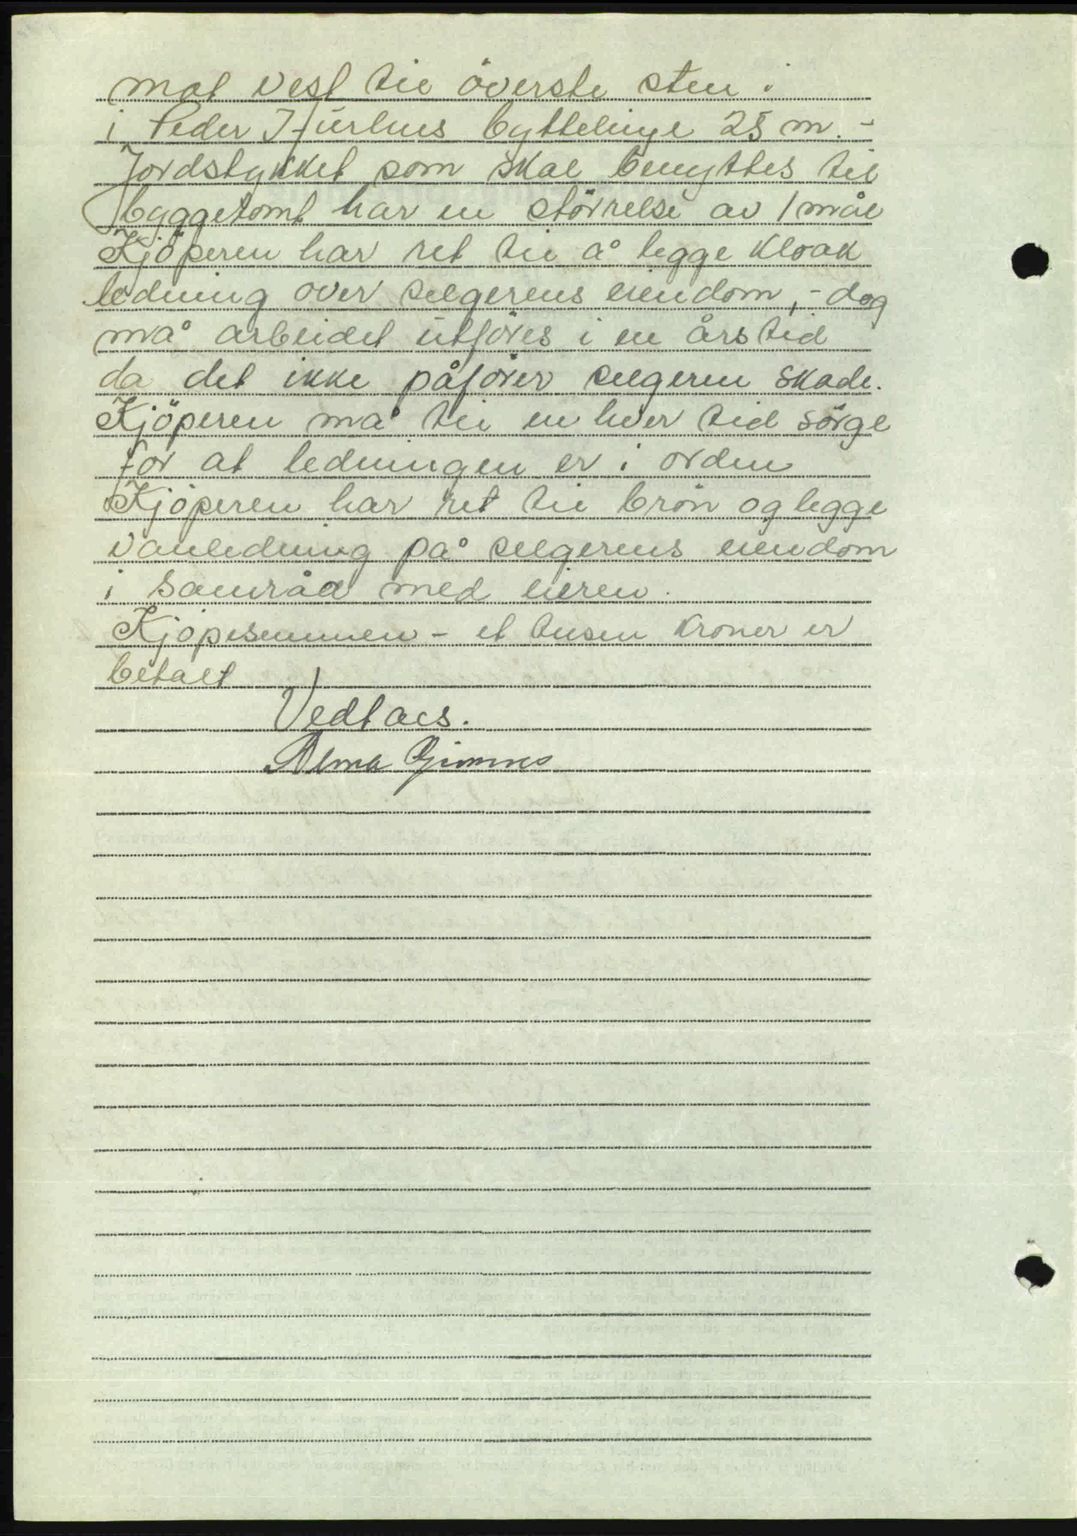 mot vest til överste sten i
i Peder Furlus byttelinje 25 m. -
Jordstykket som skal benyttes til
byggetomt har en störrelse av 1 mål
Kjöperen har ret til å legge kloak
ledning over selgerens eiendom, - dog
må arbeidet utföres i en årstid
da det ikke påförer selgeren skade.
Kjöperen må til en hver tid sörge
for at ledningen er i orden
Kjöperen har ret til brön og legge
vanledning på selgerens eiendom
i samråd med eieren.
Kjöpesummen - et tusen kroner er
betalt
Vedtaes.
Alma Gimnes